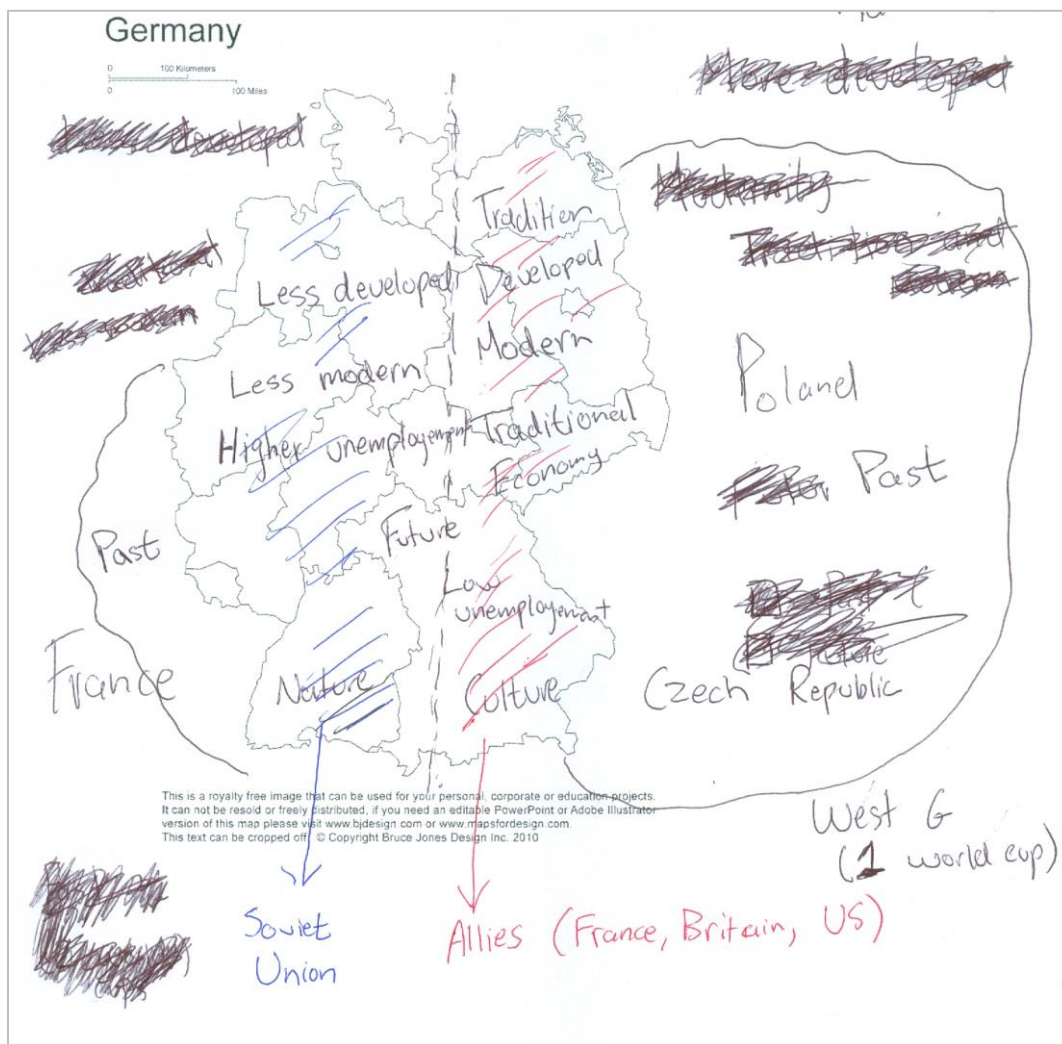 Germany
0 100 Kilometers
0 100 Miles
More developed
developed
Modernity
Tradition
Less developed
Developed
Less modern
Modern
Poland
Higher unemployement
Traditional
Economy
Past
Past
Future
Low
unemployemant
France
Nature
Culture
Czech Republic
This is a royalty free image that can be used for your personal, corporate or education projects.
It can not be resold or freely distributed, if you need an editable PowerPoint or Adobe Illustrator
version of this map please visit www.bjdesign.com or www.mapsfordesign.com.
This text can be cropped off. © Copyright Bruce Jones Design Inc. 2010
West G
(1 world cup)
Soviet
Union
Allies (France, Britain, US)